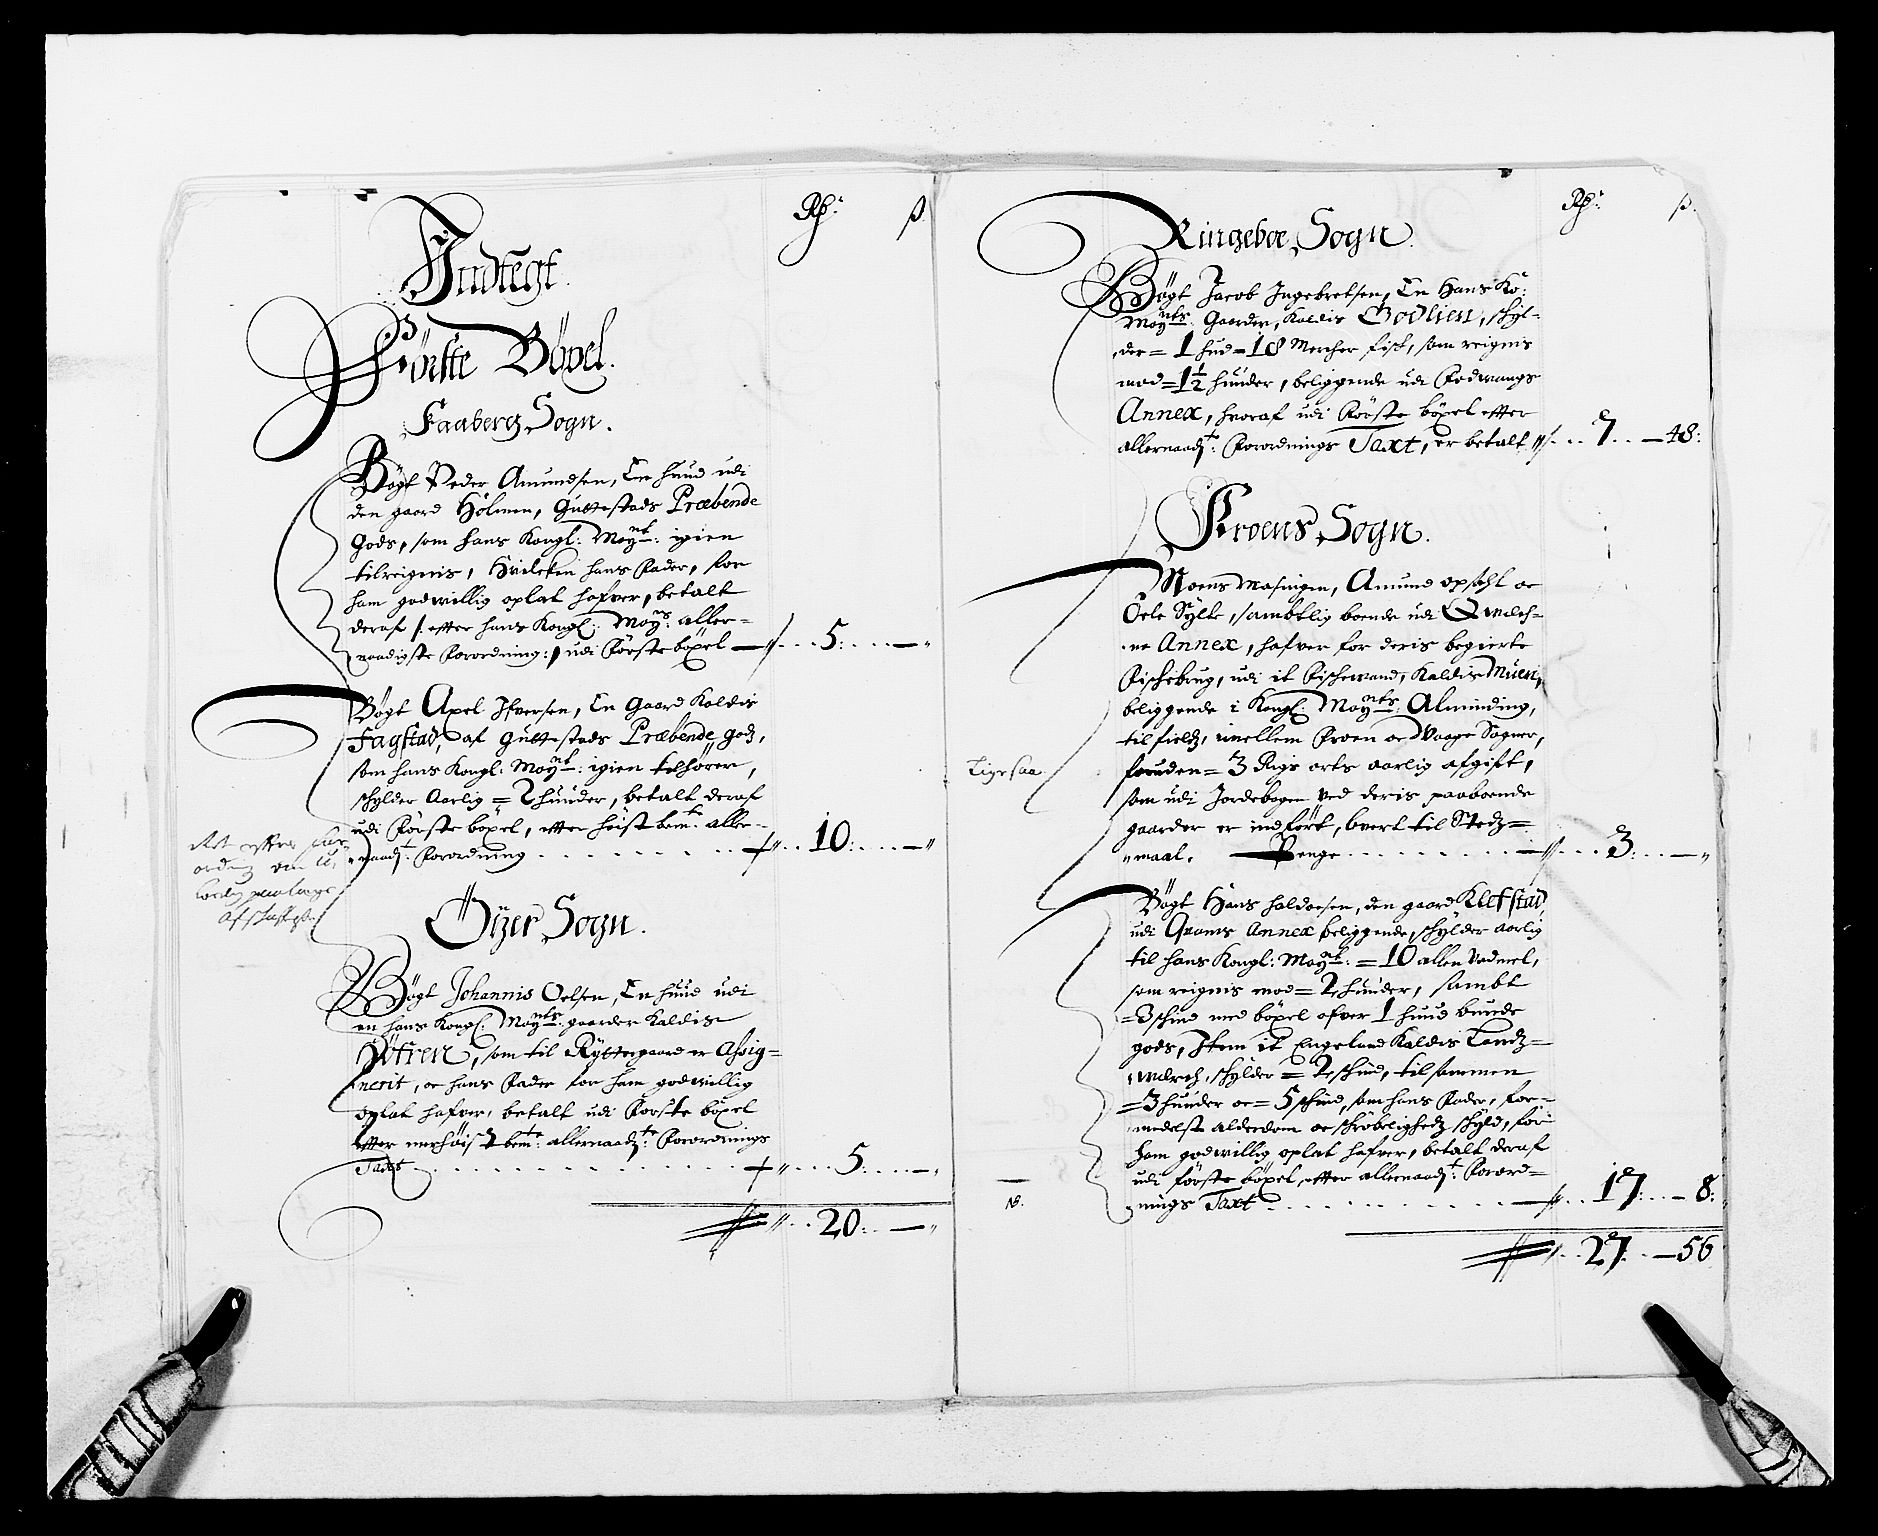 Rdr: ß.
Indtegt.
Förste Böxel.
Faaberg Sogn.
Bögt Peder Amundsen, En huud udi
den gaard Holmen, Guttestads Præbende
Gods, som hans Kongl: Mayt: igien
tilreignis, hvilcken hans Fader, for
ham godwillig oplat hafver, betalt
deraf /: efter hans Kongl: Mays: aller-
naadigste Forordning :/ udi Förste böxel — 5: — "
Bögt Axel Ifversen, En Gaard Kaldis
Fagstad, af Guttestads Præbende godz,
som hans Kongl: Mayt: igien tilhörer,
schylder Aarlig = 2 huuder, betalt deraf
udi Förste böxel, efter höist bemte: aller-
naadt: Forordning . . . 10: — "
Öyer Sogn.
Bögt Johannis Oelsen, En huud udi
en hans Kongl: Mayts: gaarder Kaldis
Jötren, som til Rytter gaard er Assig=
nerit, oc hans Fader for ham godwillig
oplat hafver, betalt udi Förste böxel
efter merhöist bemte: allernaadte: Forordnings
Taxt . . . 5: — "
20: — "
Rdr: ß.
Ringeboe Sogn.
Bögt Jacob Ingebretsen, En Hans Ko:
Mayts: Gaarder, Kaldis Godlien, schyl-
der = 1 hud - 18 Mercher fisk, som reignis
mod = 1½ huuder, beliggende udi Fodwangs
Annex, hvoraf udi Förste böxel efter
allernaadt: Forordnings Taxt, er betalt 7 — 48:
Froens Sogn.
Moens Amund Opsahl oc
Oele Sylte, sambtlig boende udi
ne Annex, hafver for deris begierte
Fischebrug, udi it Fischewand, Kaldis Muen,
beliggende i Kongl: Mayts: Alminding,
til fieldz, imellem Froen oc Waage Sogner,
foruden = 3 Rigs orts aarlig afgift,
Ligesaa
som udi Jordebogen ved deris paaboende
gaarder er indfört, hvert til Stedz=
maal. Penge . . . 3: — "
Bögt Hans Haldoersen, den gaard Klefstad,
udi Qvams Annex beliggende, schylder aarlig
til hans Kongl: Mayt: = 10 allen Vadmel,
som reignis mod = 2 huuder, sambt
= 3 schind med böxel ofver 1 huud bunde
gods, Item it Engeland Kaldis Landz=
werch, schylder = 2 schind, tilsammen
= 3 huuder oc = 5 schind, som hans Fader, for-
medelst alderdom oc schröbelighedz schyld, for
ham godwillig oplat hafver, betalt deraf
udi förste böxel, efter allernaadt: Forord=
NB.
nings Taxt . . . 17: — 8:
27 — 56